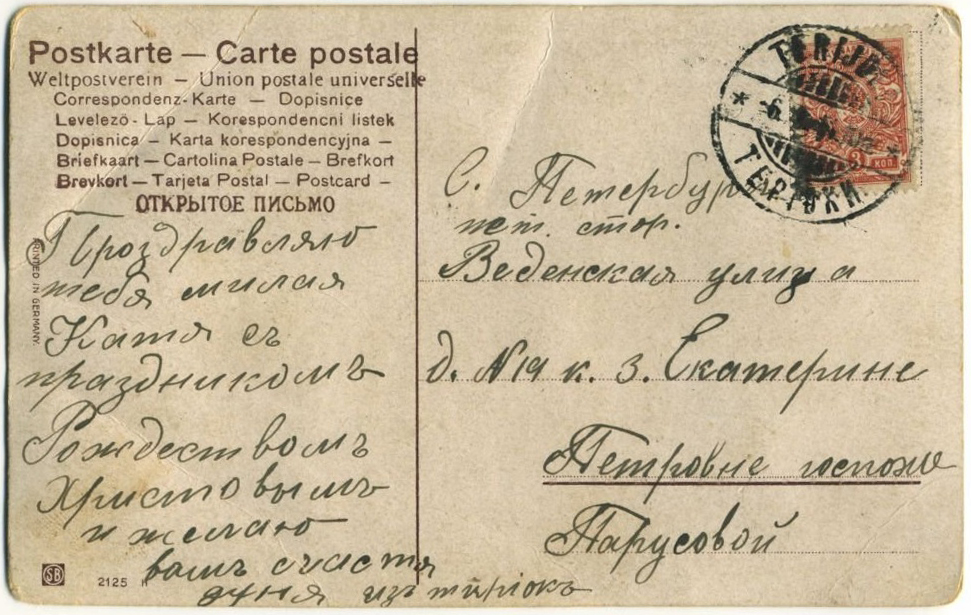 Postkarte — Carte postale
Weltpostverein — Union postale universelle
Correspondenz-Karte — Dopisnice
Levelező-Lap — Korespondencni listek
Dopisnica — Karta korespondencyjna —
Briefkaart — Cartolina Postale — Brefkort
Brevkort — Tarjeta Postal — Postcard —
ОТКРЫТОЕ ПИСЬМО
PRINTED IN GERMANY.
Проздравляю
тебя милая
Катя съ
праздникомъ
Рождествомъ
Христовымъ
и желаю
вамъ счастя
изъ
SB
2125
TERIJOKI
ТЕРІОКИ
3 КОП.
С. Петербург
пет. стор.
Веденская улица
д. №19 к. 3. Екатерине
Петровне госпоже
Парусовой